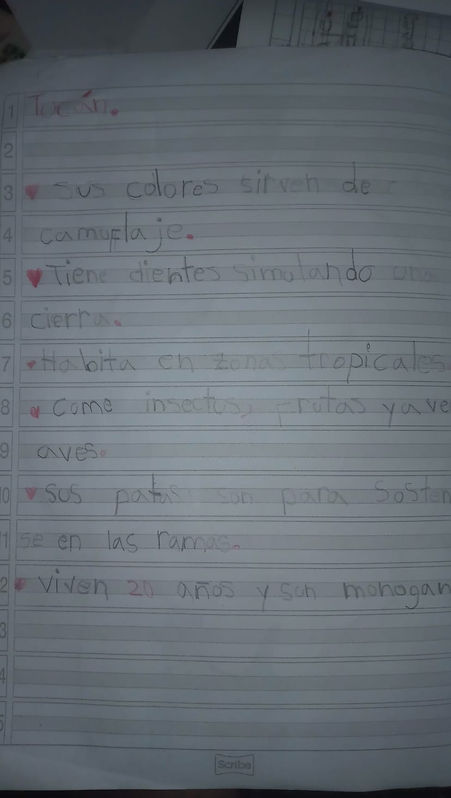 1 Tucán.
2
3 ♥ sus colores sirven de
4 camuflaje.
5 ♥ Tiene dientes simulando una
6 cierra.
7 Habita en zonas tropicales
8 come insectus, frutas y ave
9 aves.
10 ♥ sus patas son para Sosten
11 se en las ramas.
2 viven 20 años y son monogam
3
4
5
Scribe